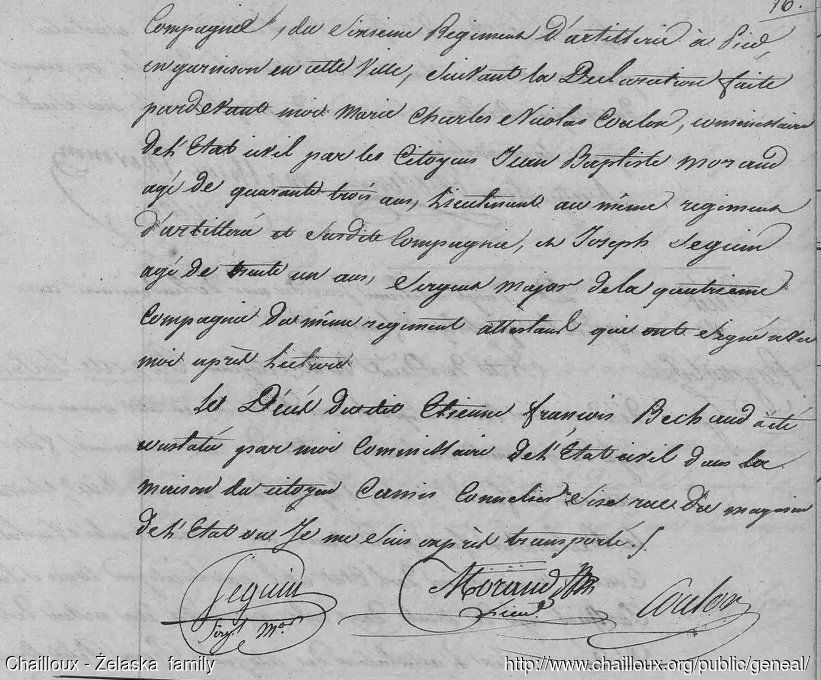 16.
Compagnie, du Sixieme Regiment D'artillerie à Pied,
en garnison en cette Ville, Suivant la Declaration faite
pardevant moi Marie Charles Nicolas Coulon, commissaire
de l'Etat civil par les Citoyens Jean Baptiste Morand
agé de quarante trois ans, Lieutenant au même regiment
d'artillerie et susdite Compagnie, et Joseph Seguin
agé de trente un ans, Sergent major de la quatrieme
Compagnie du même regiment attestant que ont Signé avec
moi après lecture
Le Décès dudit Etienne françois Bechaud a été
constaté par moi Commissaire de l'Etat civil dans la
maison du citoyen Camis Sise rue du magasin
de l'Etat ou Je me suis exprès transporté ./.
Seguin
Sergt. Mor.
Morand
Lieut.
Coulon
Chailloux - Żelaska family
http://www.chailloux.org/public/geneal/